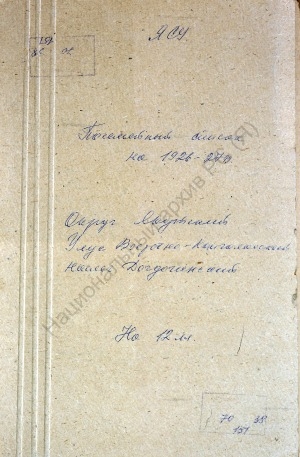 ЯСУ.
Посемейный список
на 1926-27г
Округ Якутский
Улус Западно-Кангаласский
Наслег Догдогинский
На 12 лл.
70 38
151
Национальный архив РС (Я)